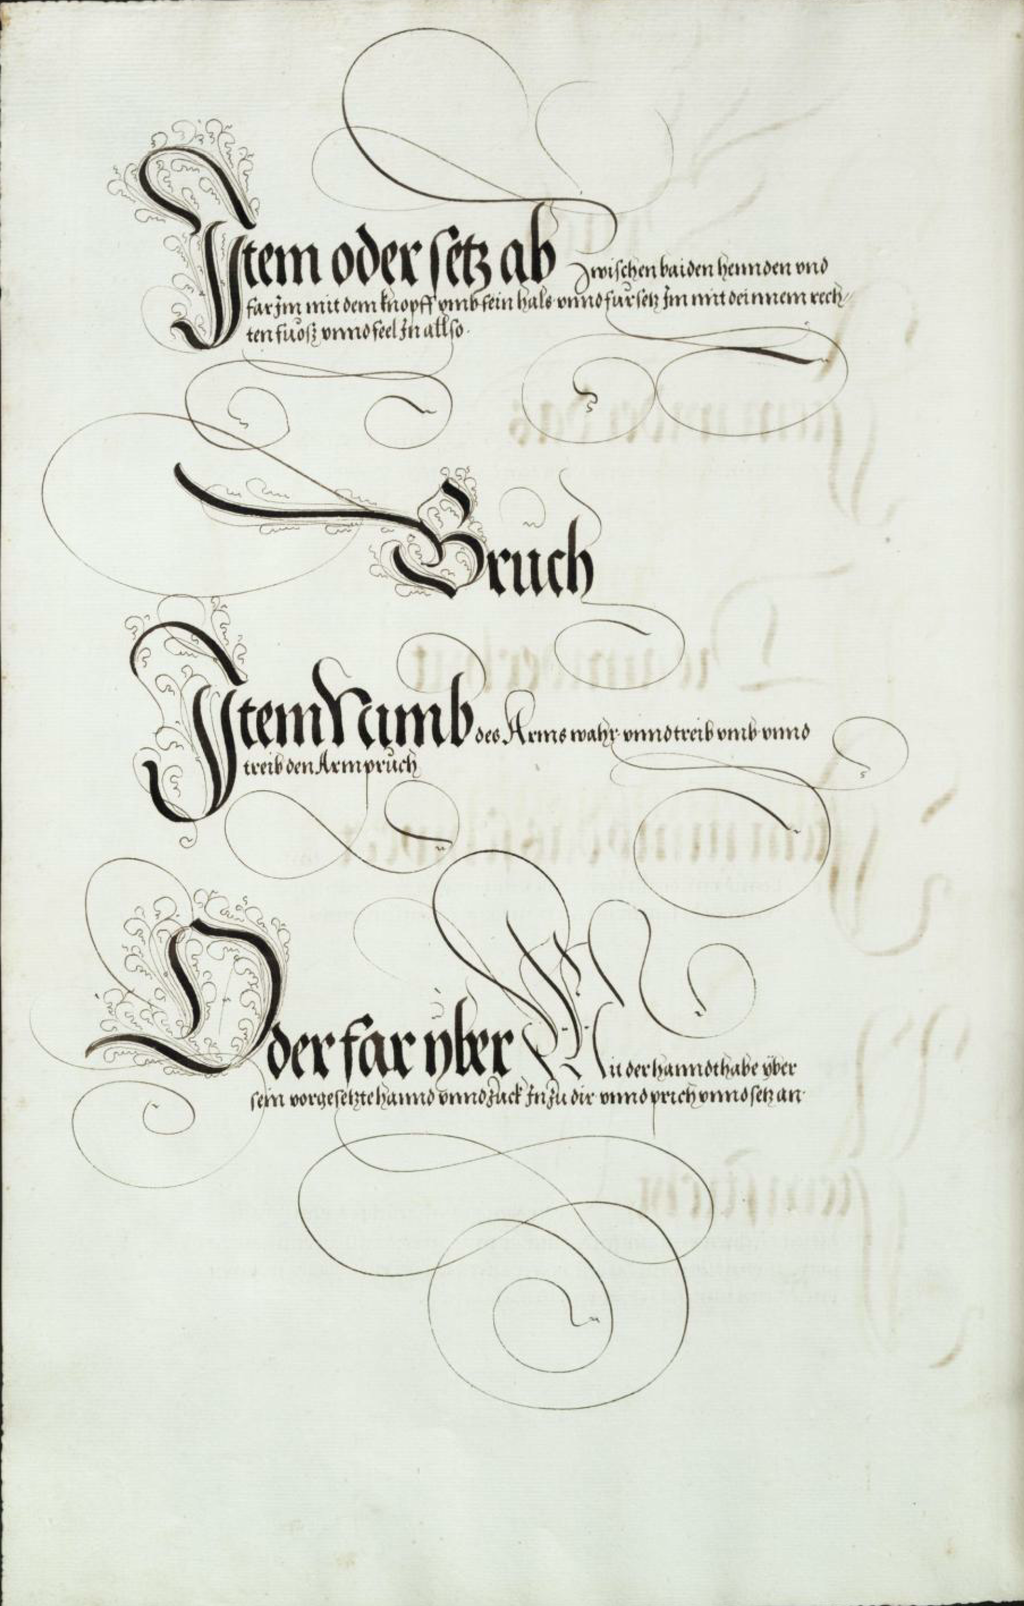 Item oder setz ab Zwischen baiden hennden vnd
far Im mit dem knopff vmb sein hals vnnd fur setz Im mit deinnem rech-
ten fuosz vnnd feel In allso.
Bruch
Item Nimb des Arms wahr vnnd treib vmb vnnd
treib den Armpruch
Oder far yber Mit der hanndthabe yber
sein vorgesetzte hannd vnnd Zuck In Zu dir vnnd prich vnnd setz an.